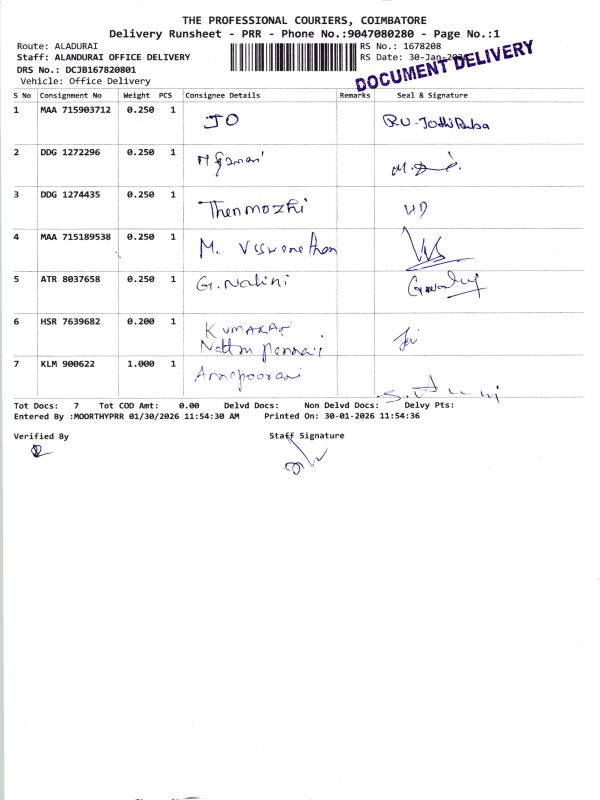 THE PROFESSIONAL COURIERS, COIMBATORE
Delivery Runsheet - PRR - Phone No.:9047080280 - Page No.:1
Route: ALADURAI
RS No.: 1678208
Staff: ALANDURAI OFFICE DELIVERY
RS Date: 30-Jan-
DOCUMENT DELIVERY
DRS No.: DCJB167820801
Vehicle: Office Delivery
S No Consignment No Weight PCS Consignee Details Remarks Seal & Signature
1 MAA 715903712 0.250 1 JO
2 DDG 1272296 0.250 1
3 DDG 1274435 0.250 1 Thenmozhi
4 MAA 715189538 0.250 1 M. Visswanathan
5 ATR 8037658 0.250 1 G. Nalini
6 HSR 7639682 0.200 1
7 KLM 900622 1.000 1 Annapoorani
Tot Docs: 7 Tot COD Amt: 0.00 Delvd Docs: Non Delvd Docs: Delvy Pts:
Entered By :MOORTHYPRR 01/30/2026 11:54:30 AM Printed On: 30-01-2026 11:54:36
Verified By Staff Signature